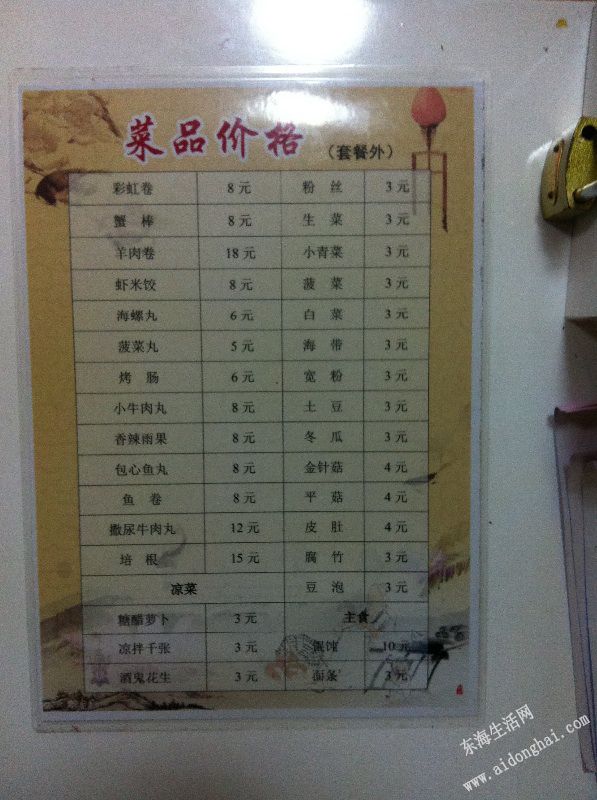 菜品价格 （套餐外）
彩虹卷 8元 粉丝 3元
蟹棒 8元 生菜 3元
羊肉卷 18元 小青菜 3元
虾米饺 8元 菠菜 3元
海螺丸 6元 白菜 3元
菠菜丸 5元 海带 3元
烤肠 6元 宽粉 3元
小牛肉丸 8元 土豆 3元
香辣雨果 8元 冬瓜 3元
包心鱼丸 8元 金针菇 4元
鱼卷 8元 平菇 4元
撒尿牛肉丸 12元 皮肚 4元
培根 15元 腐竹 3元
凉菜 豆泡 3元
糖醋萝卜 3元 主食
凉拌千张 3元 馄饨 10元
酒鬼花生 3元 面条 3元
东海生活网
www.aidonghai.com